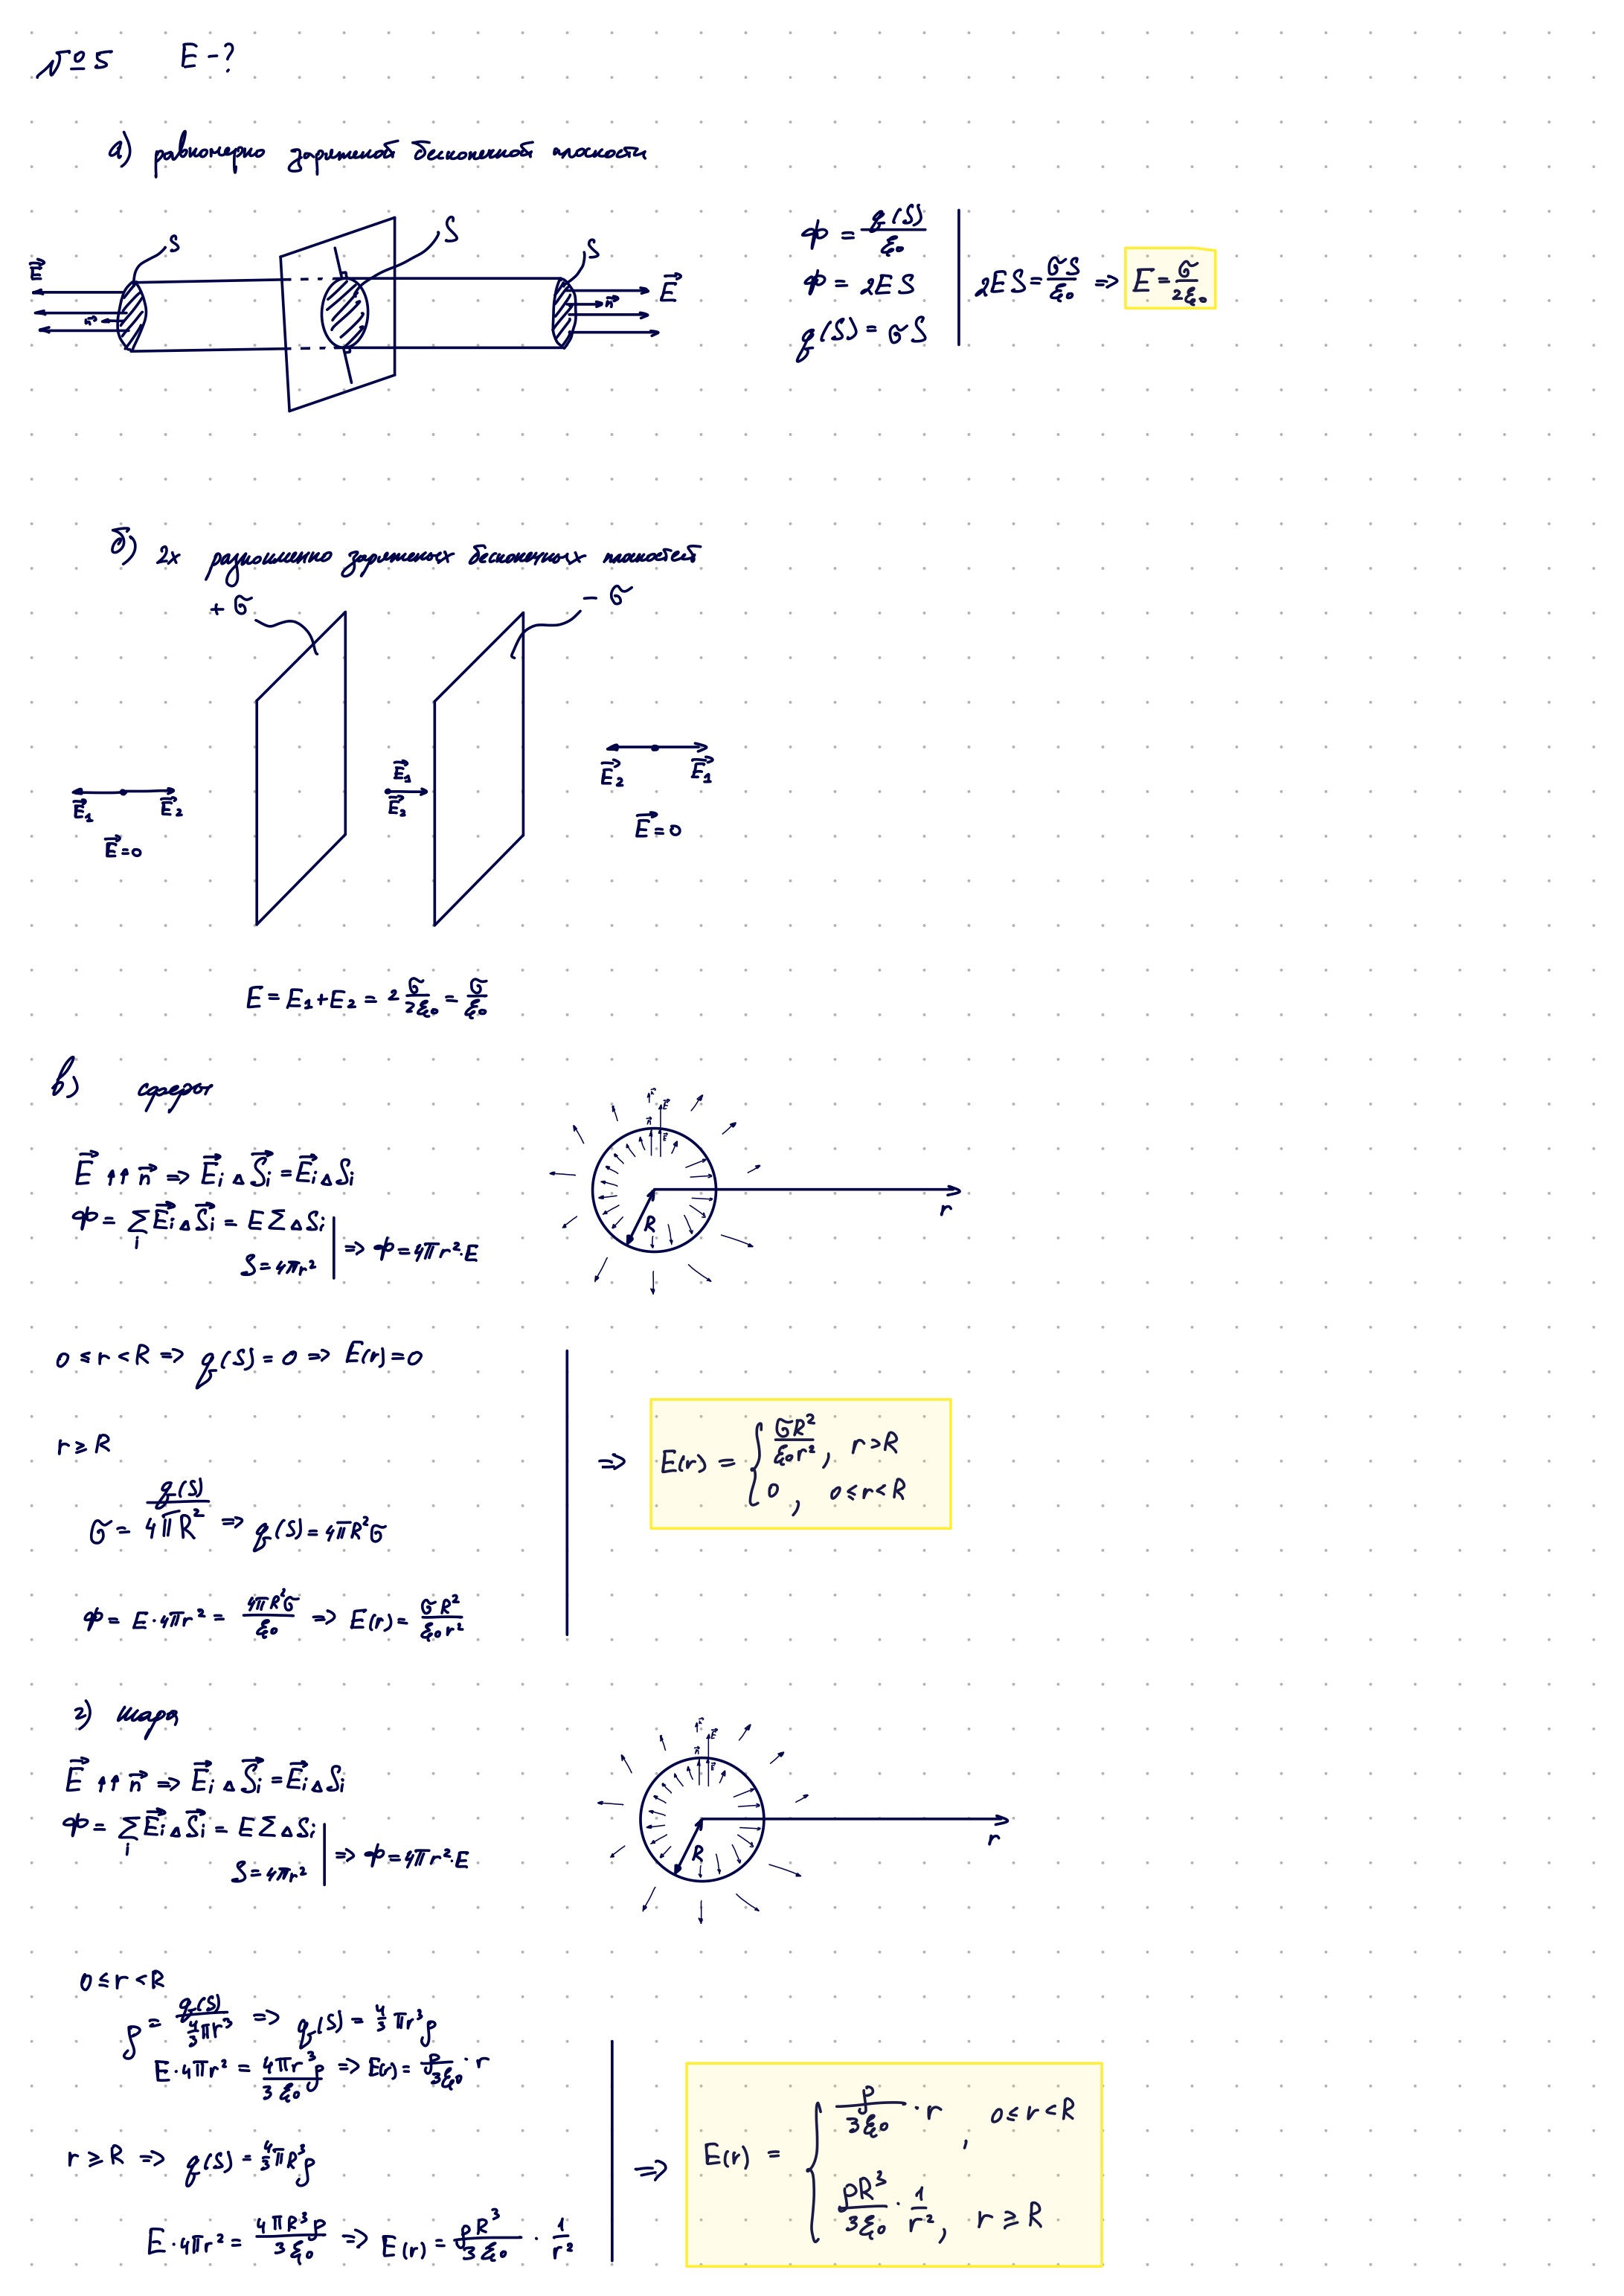 №5 E - ?
а) равномерно заряженой бесконечной плоскости
S S S
E⃗ n⃗ n⃗ E⃗
Ф = q(S)/ε₀
Ф = 2ES
q(S) = σS
2ES = σS/ε₀ => E = σ/2ε₀
б) 2х разноименно заряженых бесконечных плоскостей
+σ -σ
E⃗₁ E⃗₂
E⃗ = 0
E⃗₁
E⃗₂
E⃗₂ E⃗₁
E⃗ = 0
E = E₁ + E₂ = 2 σ/2ε₀ = σ/ε₀
в) сферы
E⃗ ↑↑ n⃗ => E⃗ᵢ ΔS⃗ᵢ = E⃗ᵢ ΔSᵢ
Ф = Σᵢ E⃗ᵢ ΔS⃗ᵢ = E Σ ΔSᵢ
S = 4πr²
=> Ф = 4πr²·E
n⃗ E⃗
n⃗ E⃗
R r
0 ≤ r < R => q(S) = 0 => E(r) = 0
r ≥ R
σ = q(S)/4πR² => q(S) = 4πR²σ
Ф = E·4πr² = 4πR²σ/ε₀ => E(r) = σR²/ε₀r²
=> E(r) = { σR²/ε₀r², r > R
0, 0 ≤ r < R
г) шара
E⃗ ↑↑ n⃗ => E⃗ᵢ ΔS⃗ᵢ = E⃗ᵢ ΔSᵢ
Ф = Σᵢ E⃗ᵢ ΔS⃗ᵢ = E Σ ΔSᵢ
S = 4πr²
=> Ф = 4πr²·E
n⃗ E⃗
n⃗ E⃗
R r
0 ≤ r < R
ρ = q(S)/(4/3 πr³) => q(S) = 4/3 πr³ρ
E·4πr² = 4πr³ρ/3ε₀ => E(r) = ρ/3ε₀ · r
r ≥ R => q(S) = 4/3 πR³ρ
E·4πr² = 4πR³ρ/3ε₀ => E(r) = ρR³/3ε₀ · 1/r²
=> E(r) = { ρ/3ε₀ · r, 0 ≤ r < R
ρR³/3ε₀ · 1/r², r ≥ R